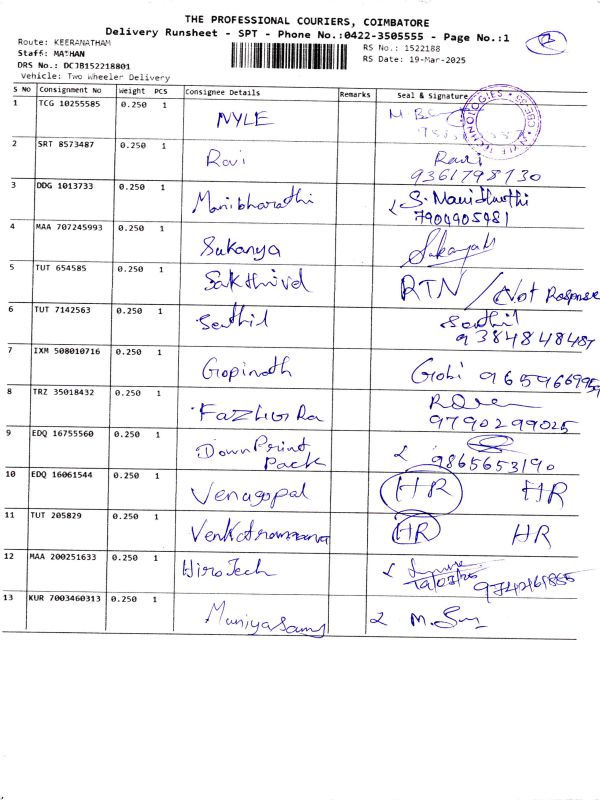 THE PROFESSIONAL COURIERS, COIMBATORE
Delivery Runsheet - SPT - Phone No.:0422-3505555 - Page No.:1
Route: KEERANATHAM
RS No.: 1522188
Staff: MATHAN
RS Date: 19-Mar-2025
DRS No.: DCJB152218801
Vehicle: Two Wheeler Delivery
S No Consignment No Weight PCS Consignee Details Remarks Seal & Signature
1 TCG 10255585 0.250 1 NYLE
TECHNOLOGIES
2 SRT 8573487 0.250 1 Ravi Ravi
9361798130
3 DDG 1013733 0.250 1 Manibharathi S. Manibharathi
7904905981
4 MAA 707245993 0.250 1 Sukanya Sukanyah
5 TUT 654585 0.250 1 Sakthivel RTN / Not Response
6 TUT 7142563 0.250 1 Senthil Senthil
9384848487
7 IXM 508010716 0.250 1 Gopinath Gobi 9659669959
8 TRZ 35018432 0.250 1
9790299025
9 EDQ 16755560 0.250 1 Down Print
Pack
9865653190
10 EDQ 16061544 0.250 1 Venagopal HR HR
11 TUT 205829 0.250 1 HR HR
12 MAA 200251633 0.250 1 Hiro Tech
13 KUR 7003460313 0.250 1 Muniyasamy